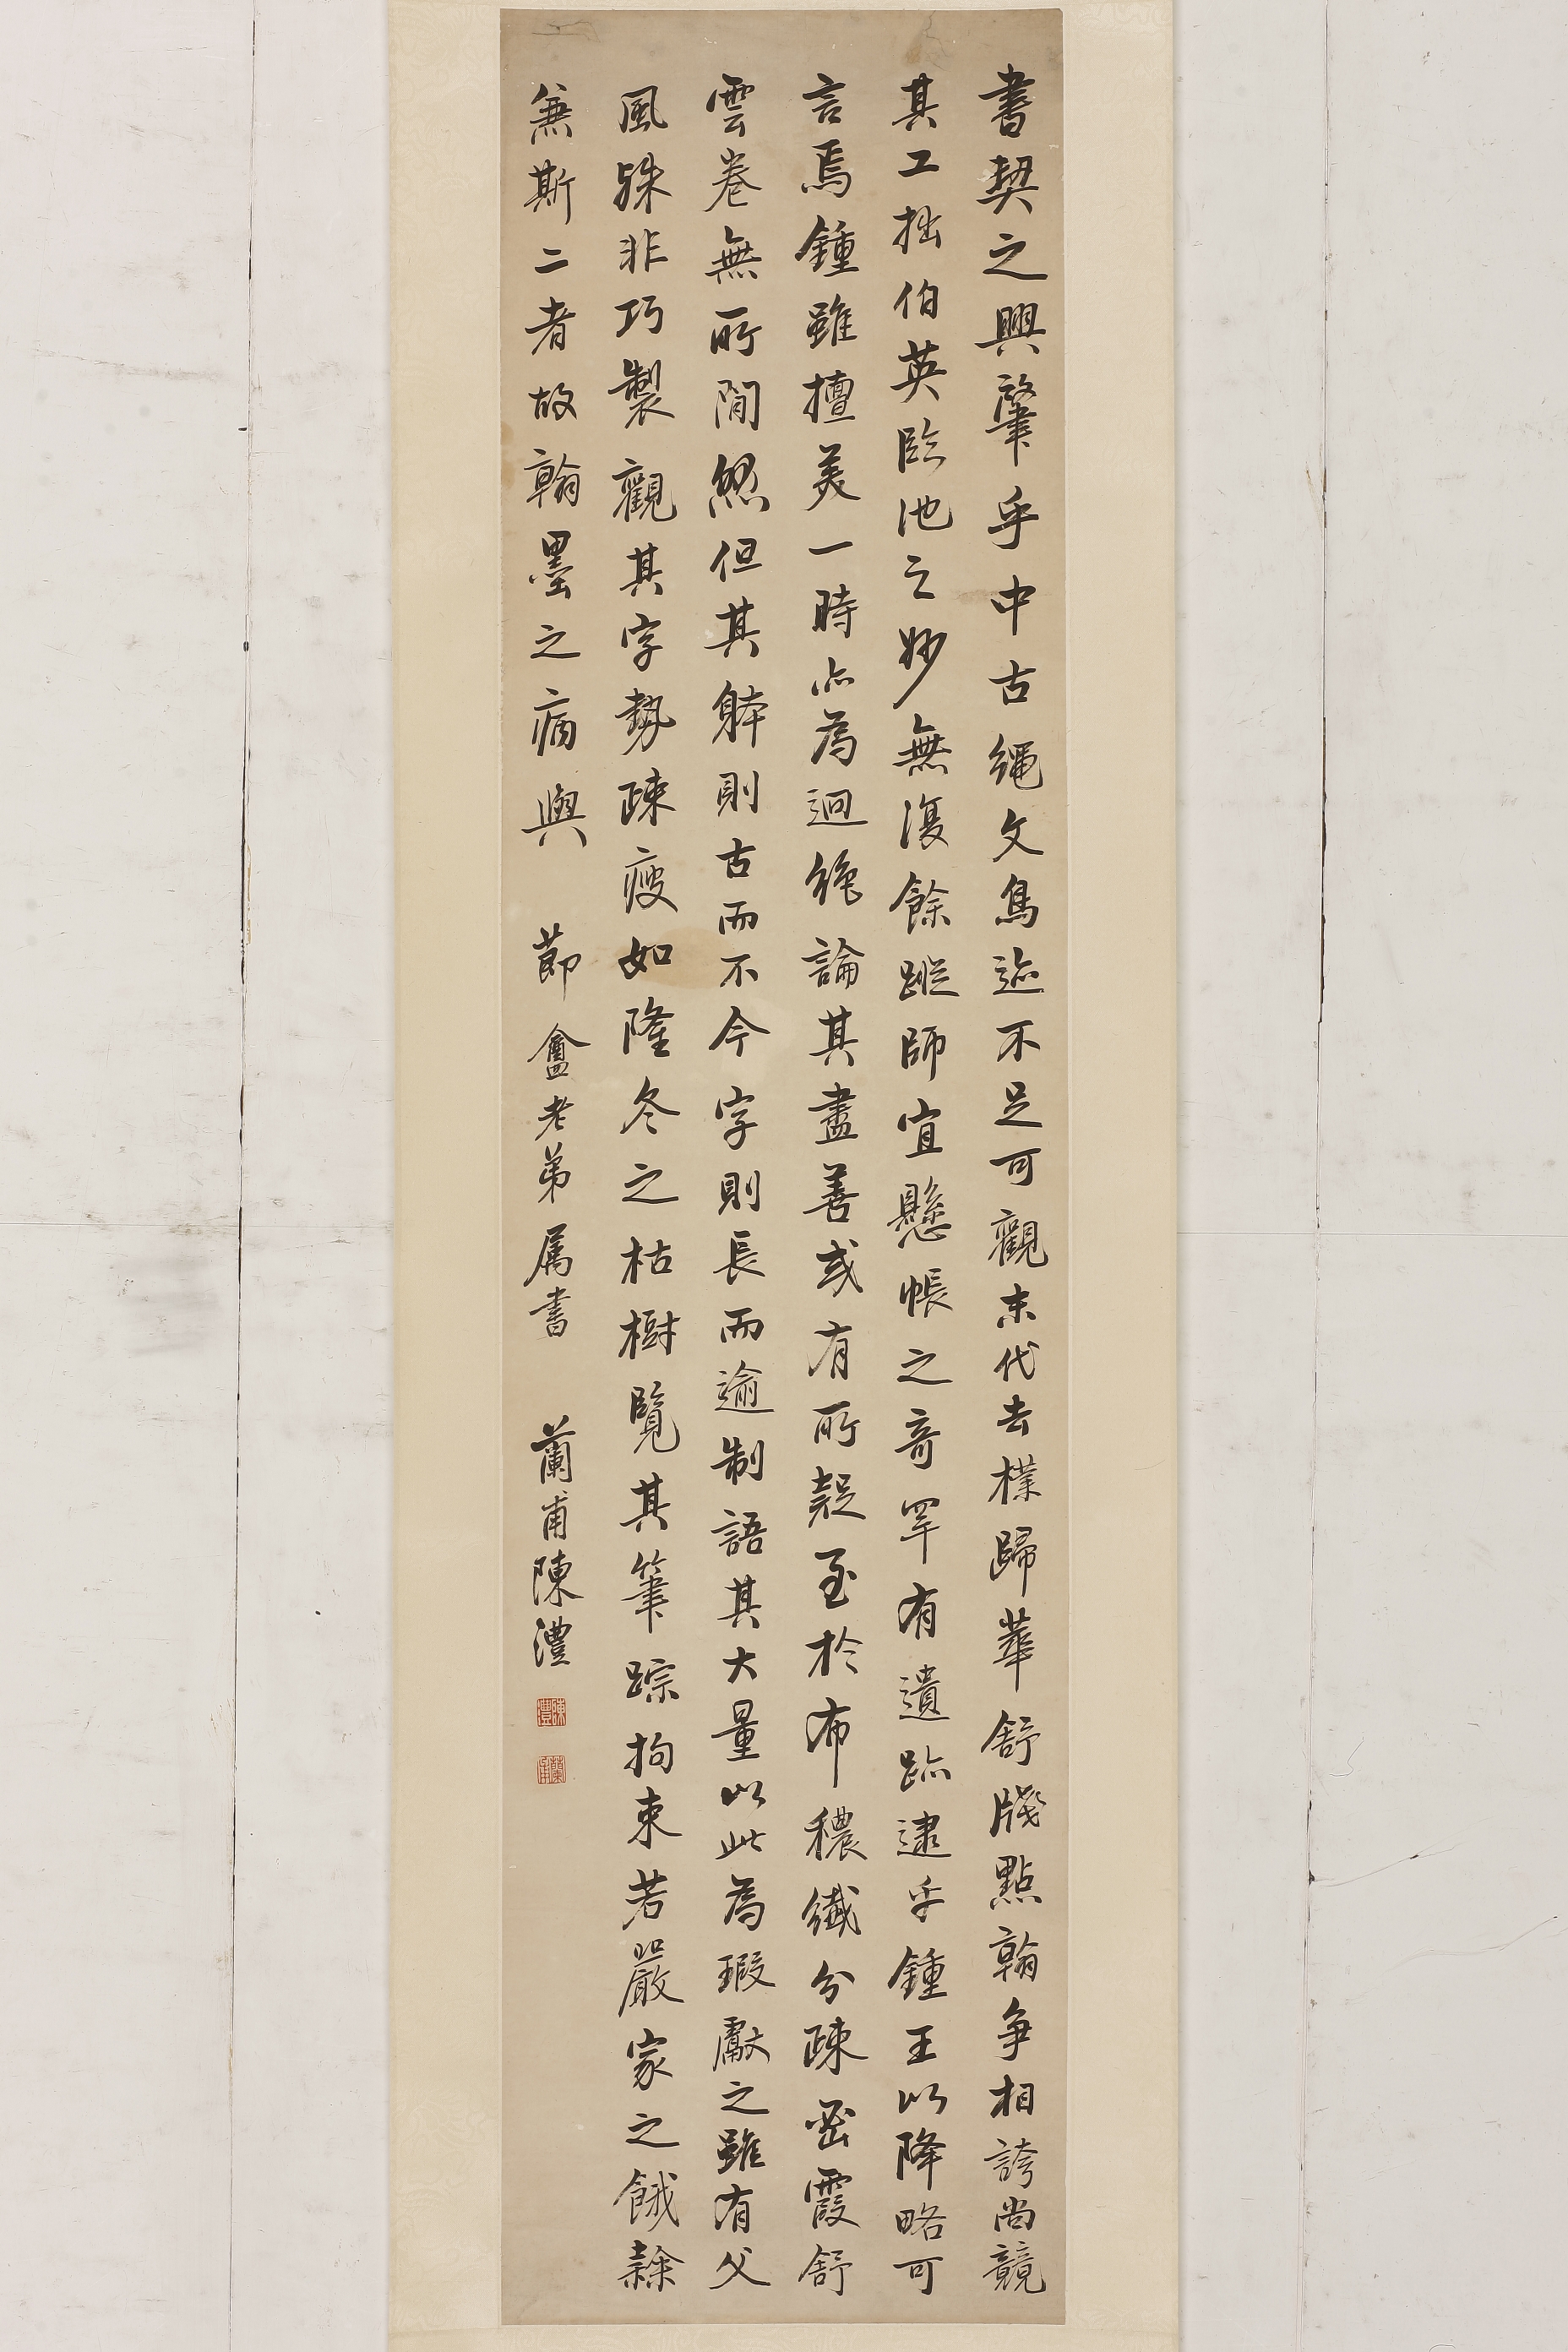 書契之興肇乎中古繩文鳥迹不足可觀末代去樸歸華舒牋點翰爭相誇尚競
其工拙伯英臨池之妙無復餘蹤師宜懸帳之奇罕有遺跡逮乎鍾王以降略可
言焉鍾雖擅美一時亦為迥絕論其盡善或有所疑至於布穠纖分疎密霞舒
雲卷無所間然但其躰則古而不今字則長而逾制語其大量以此為瑕獻之雖有父
風殊非巧製觀其字勢疎瘦如隆冬之枯樹覽其筆蹤拘束若嚴家之餓隸
兼斯二者故翰墨之病與 節盦老弟属書 蘭甫陳澧
陳澧
蘭甫